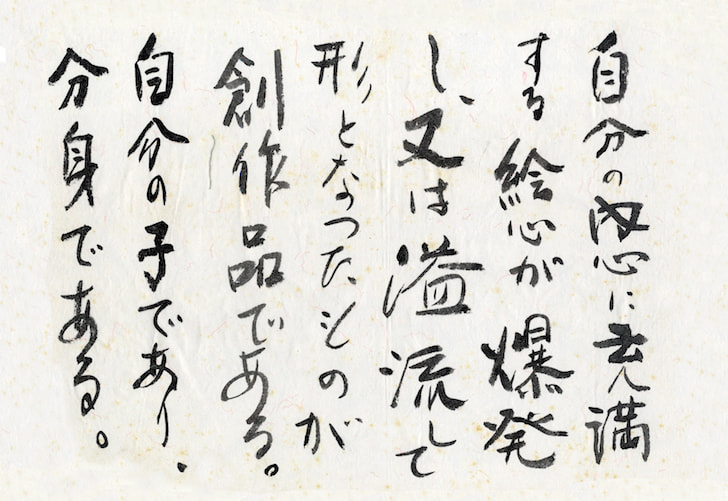 自分の内心に充満
する絵心が爆発
し、又は溢流して
形となつたものが
創作品である。
自分の子であり、
分身である。